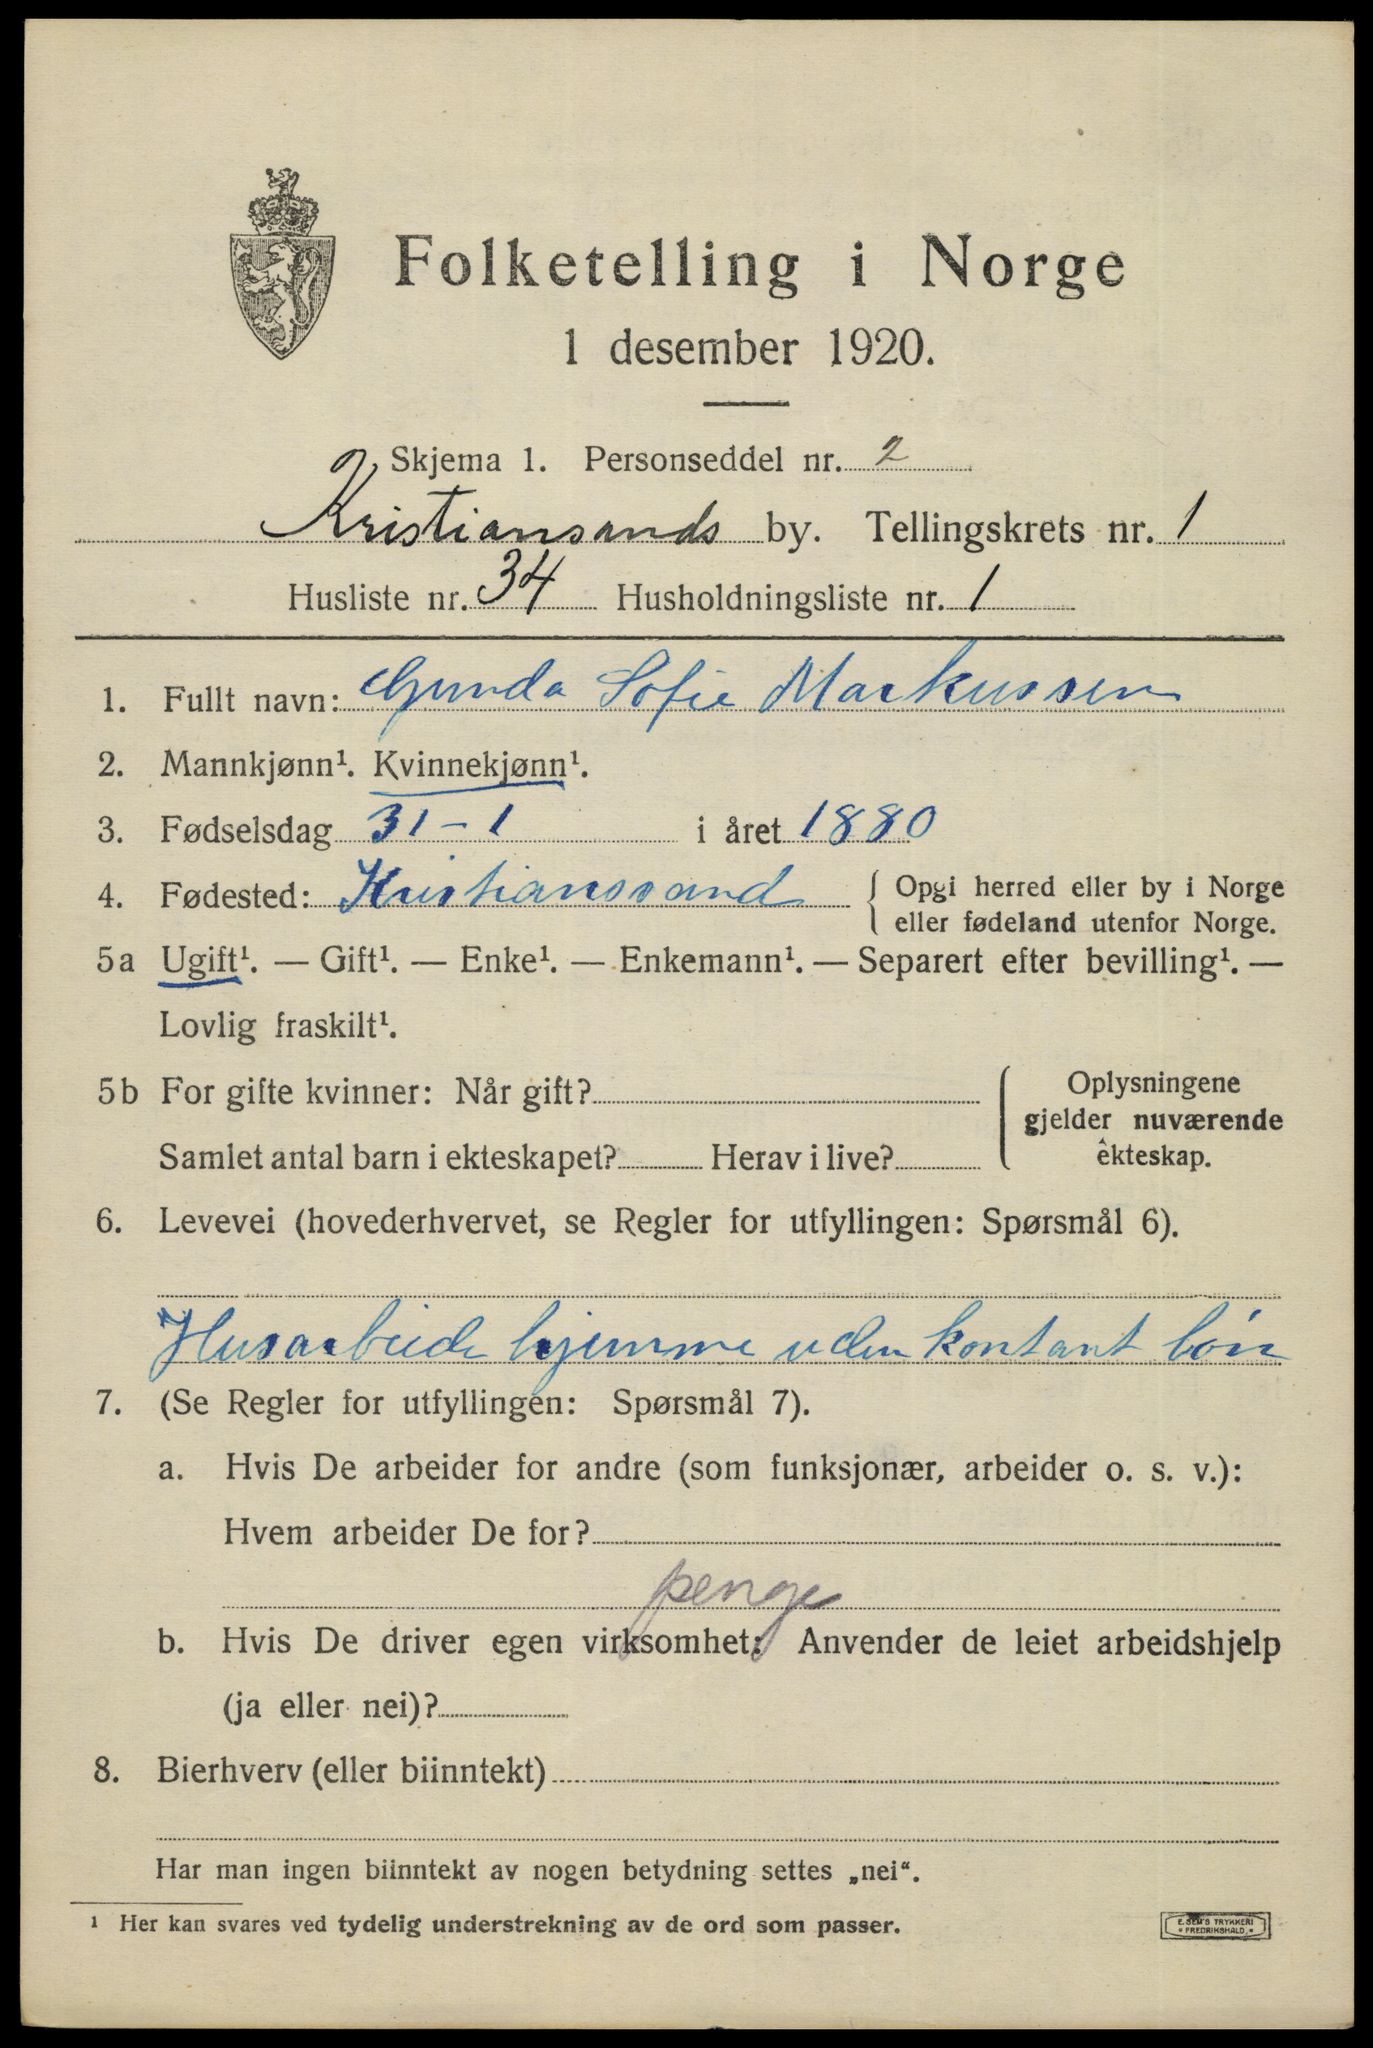 Folketelling i Norge
1 desember 1920.
Skjema 1. Personseddel nr. 2
Kristiansands by. Tellingskrets nr. 1
Husliste nr. 34 Husholdningsliste nr. 1
1. Fullt navn: Gunda Sofie Markussen
2. Mannkjønn¹. Kvinnekjønn¹.
3. Fødselsdag 31-1 i året 1880
4. Fødested: Kristianssand { Opgi herred eller by i Norge
eller fødeland utenfor Norge.
5a Ugift¹. — Gift¹. — Enke¹. — Enkemann¹. — Separert efter bevilling¹. —
Lovlig fraskilt¹.
5b For gifte kvinner: Når gift?
Samlet antal barn i ekteskapet? Herav i live?
Oplysningene
gjelder nuværende
ekteskap.
6. Levevei (hovederhvervet, se Regler for utfyllingen: Spørsmål 6).
Husarbeide hjemme uden kontant løn
7. (Se Regler for utfyllingen: Spørsmål 7).
a. Hvis De arbeider for andre (som funksjonær, arbeider o. s. v.):
Hvem arbeider De for?
penge
b. Hvis De driver egen virksomhet: Anvender de leiet arbeidshjelp
(ja eller nei)?
8. Bierhverv (eller biinntekt)
Har man ingen biinntekt av nogen betydning settes „nei“.
¹ Her kan svares ved tydelig understrekning av de ord som passer.
E. SEM'S TRYKKERI
FREDRIKSHALD.